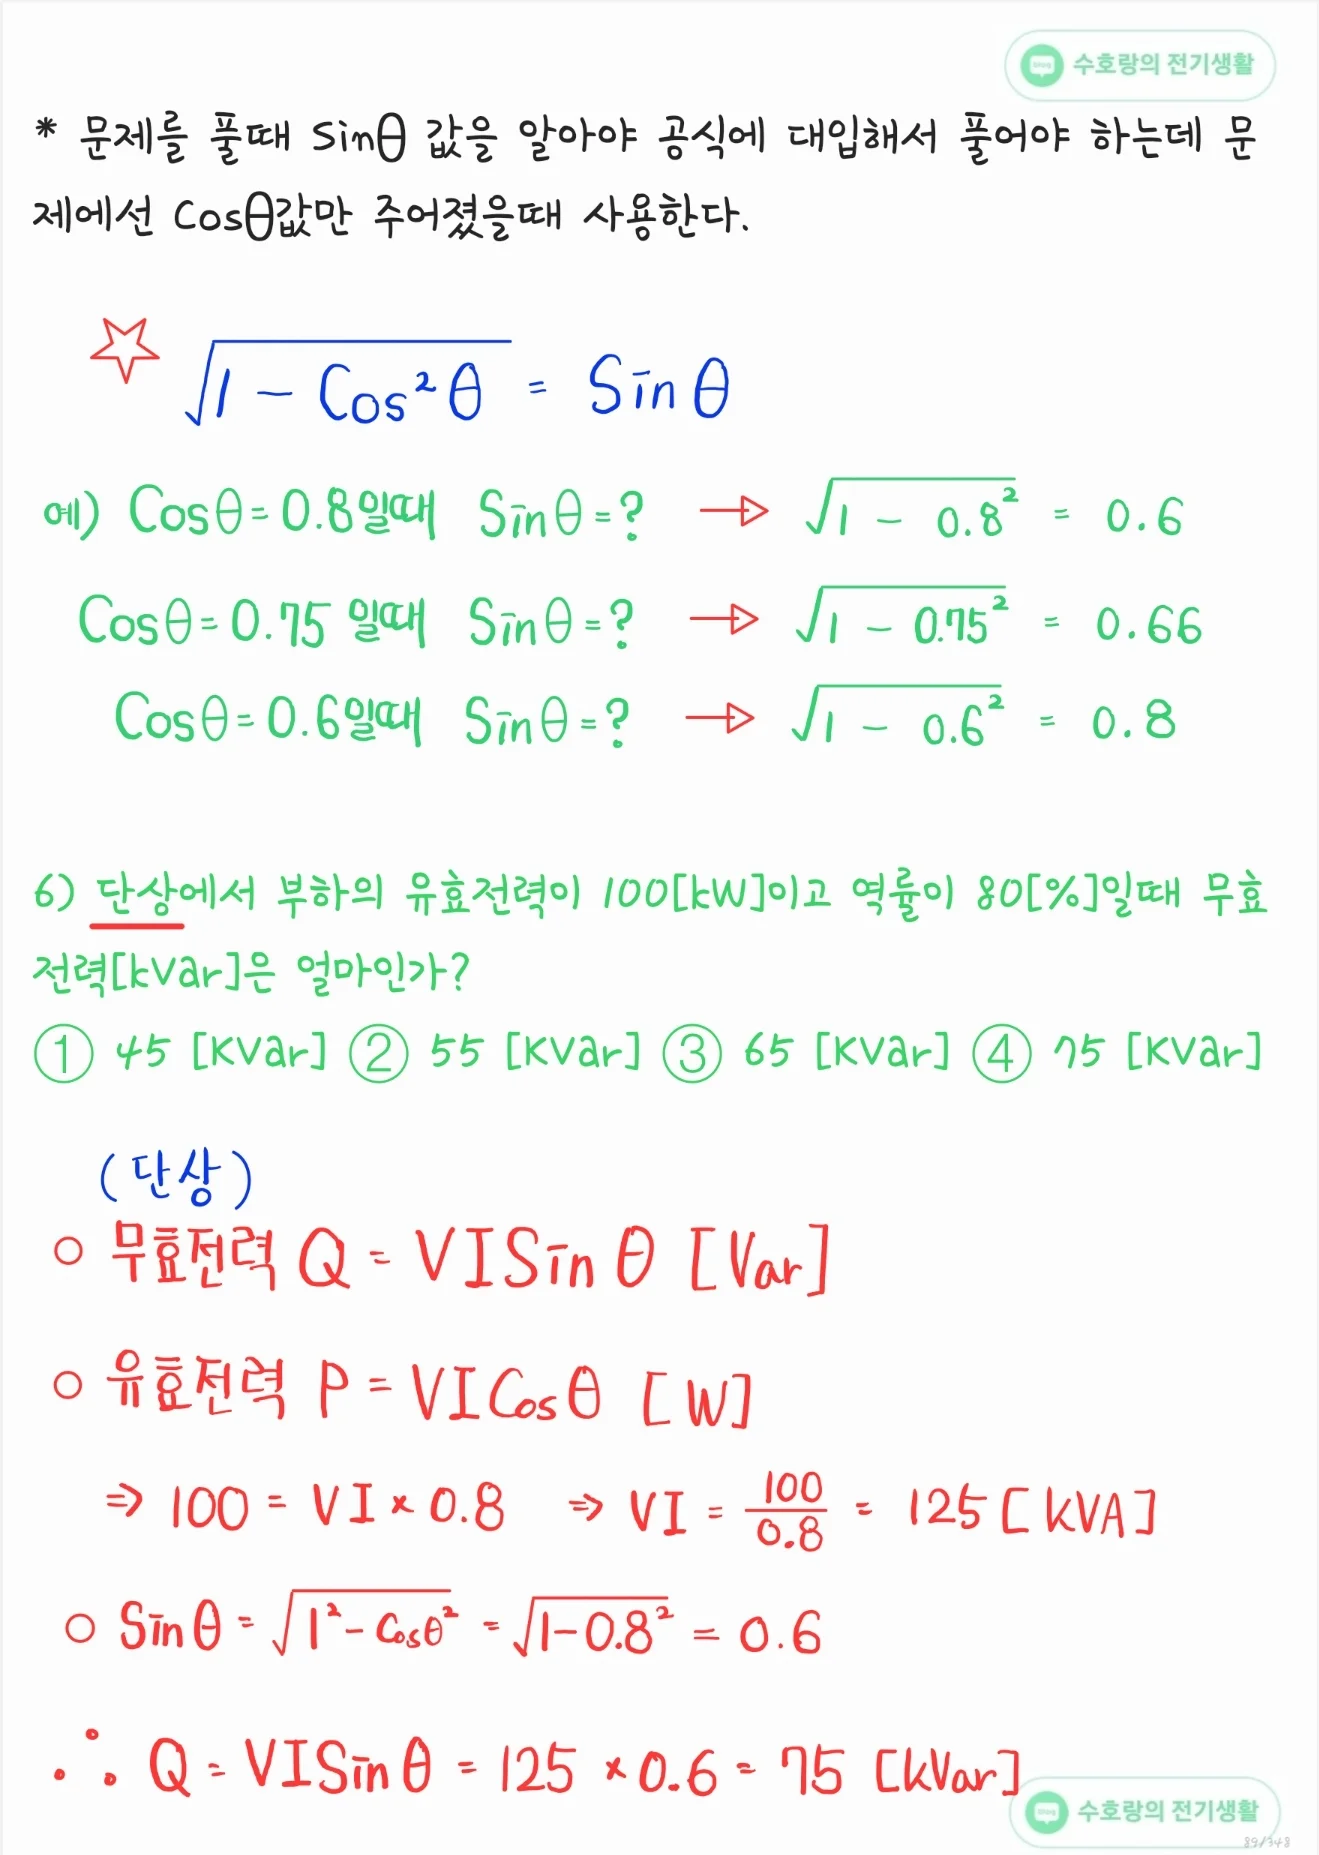 수호랑의 전기생활
* 문제를 풀때 Sinθ 값을 알아야 공식에 대입해서 풀어야 하는데 문
제에선 Cosθ값만 주어졌을때 사용한다.
☆ √(1 - Cos²θ) = Sinθ
예) Cosθ = 0.8일때 Sinθ = ? → √(1 - 0.8²) = 0.6
Cosθ = 0.75 일때 Sinθ = ? → √(1 - 0.75²) = 0.66
Cosθ = 0.6일때 Sinθ = ? → √(1 - 0.6²) = 0.8
6) 단상에서 부하의 유효전력이 100[kW]이고 역률이 80[%]일때 무효
전력[kVar]은 얼마인가?
① 45 [KVar] ② 55 [KVar] ③ 65 [KVar] ④ 75 [KVar]
(단상)
○ 무효전력 Q = VISinθ [Var]
○ 유효전력 P = VICosθ [W]
⇒ 100 = VI × 0.8 ⇒ VI = 100/0.8 = 125 [kVA]
○ Sinθ = √(1² - Cosθ²) = √(1 - 0.8²) = 0.6
∴ Q = VISinθ = 125 × 0.6 = 75 [kVar]
blog 수호랑의 전기생활
89/348